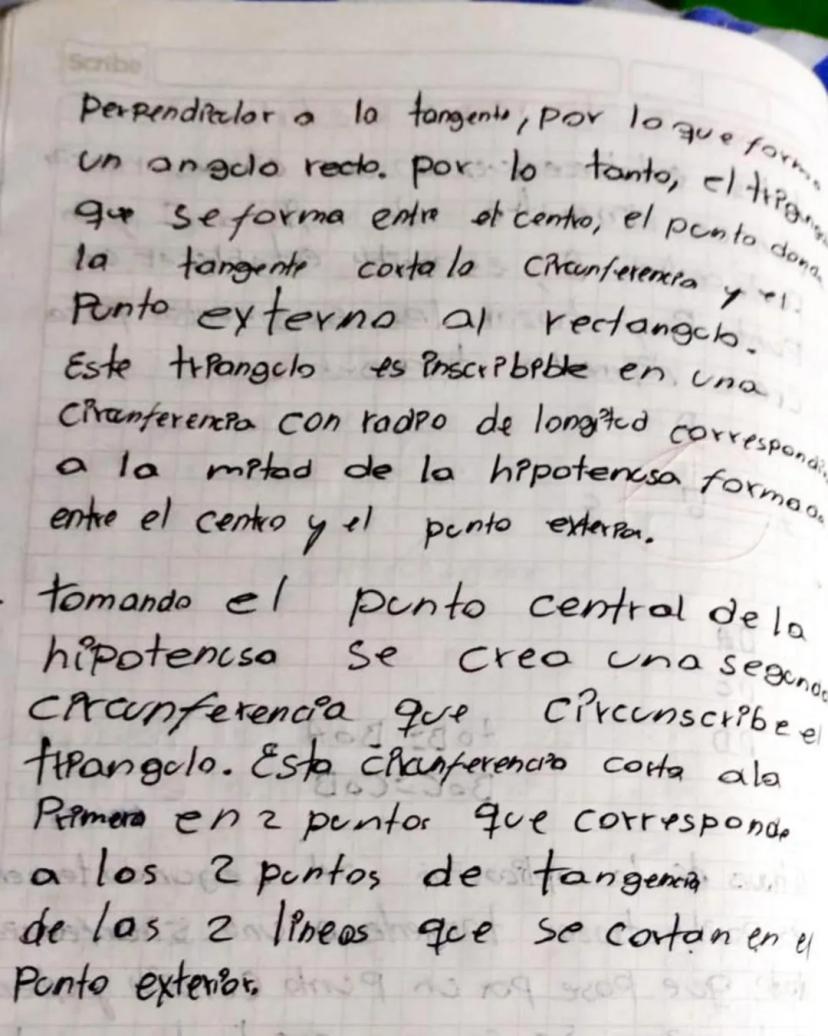 Scribe
perpendicular a la tangente, por lo que forma
un angulo recto. por lo tanto, el triangulo
que se forma entre el centro, el punto donde
la tangente corta la circunferencia y el
Punto externo al rectangulo.
Este triangulo es inscribible en una
Circunferencia con radio de longitud correspondi
a la mitad de la hipotenusa formada
entre el centro y el punto exterior.
tomando el punto central de la
hipotenusa se crea una segunda
circunferencia que circunscribe el
triangulo. Esta circunferencia corta a la
Primera en 2 puntos que corresponde
a los 2 puntos de tangencia
de las 2 lineas que se cortan en el
Punto exterior.